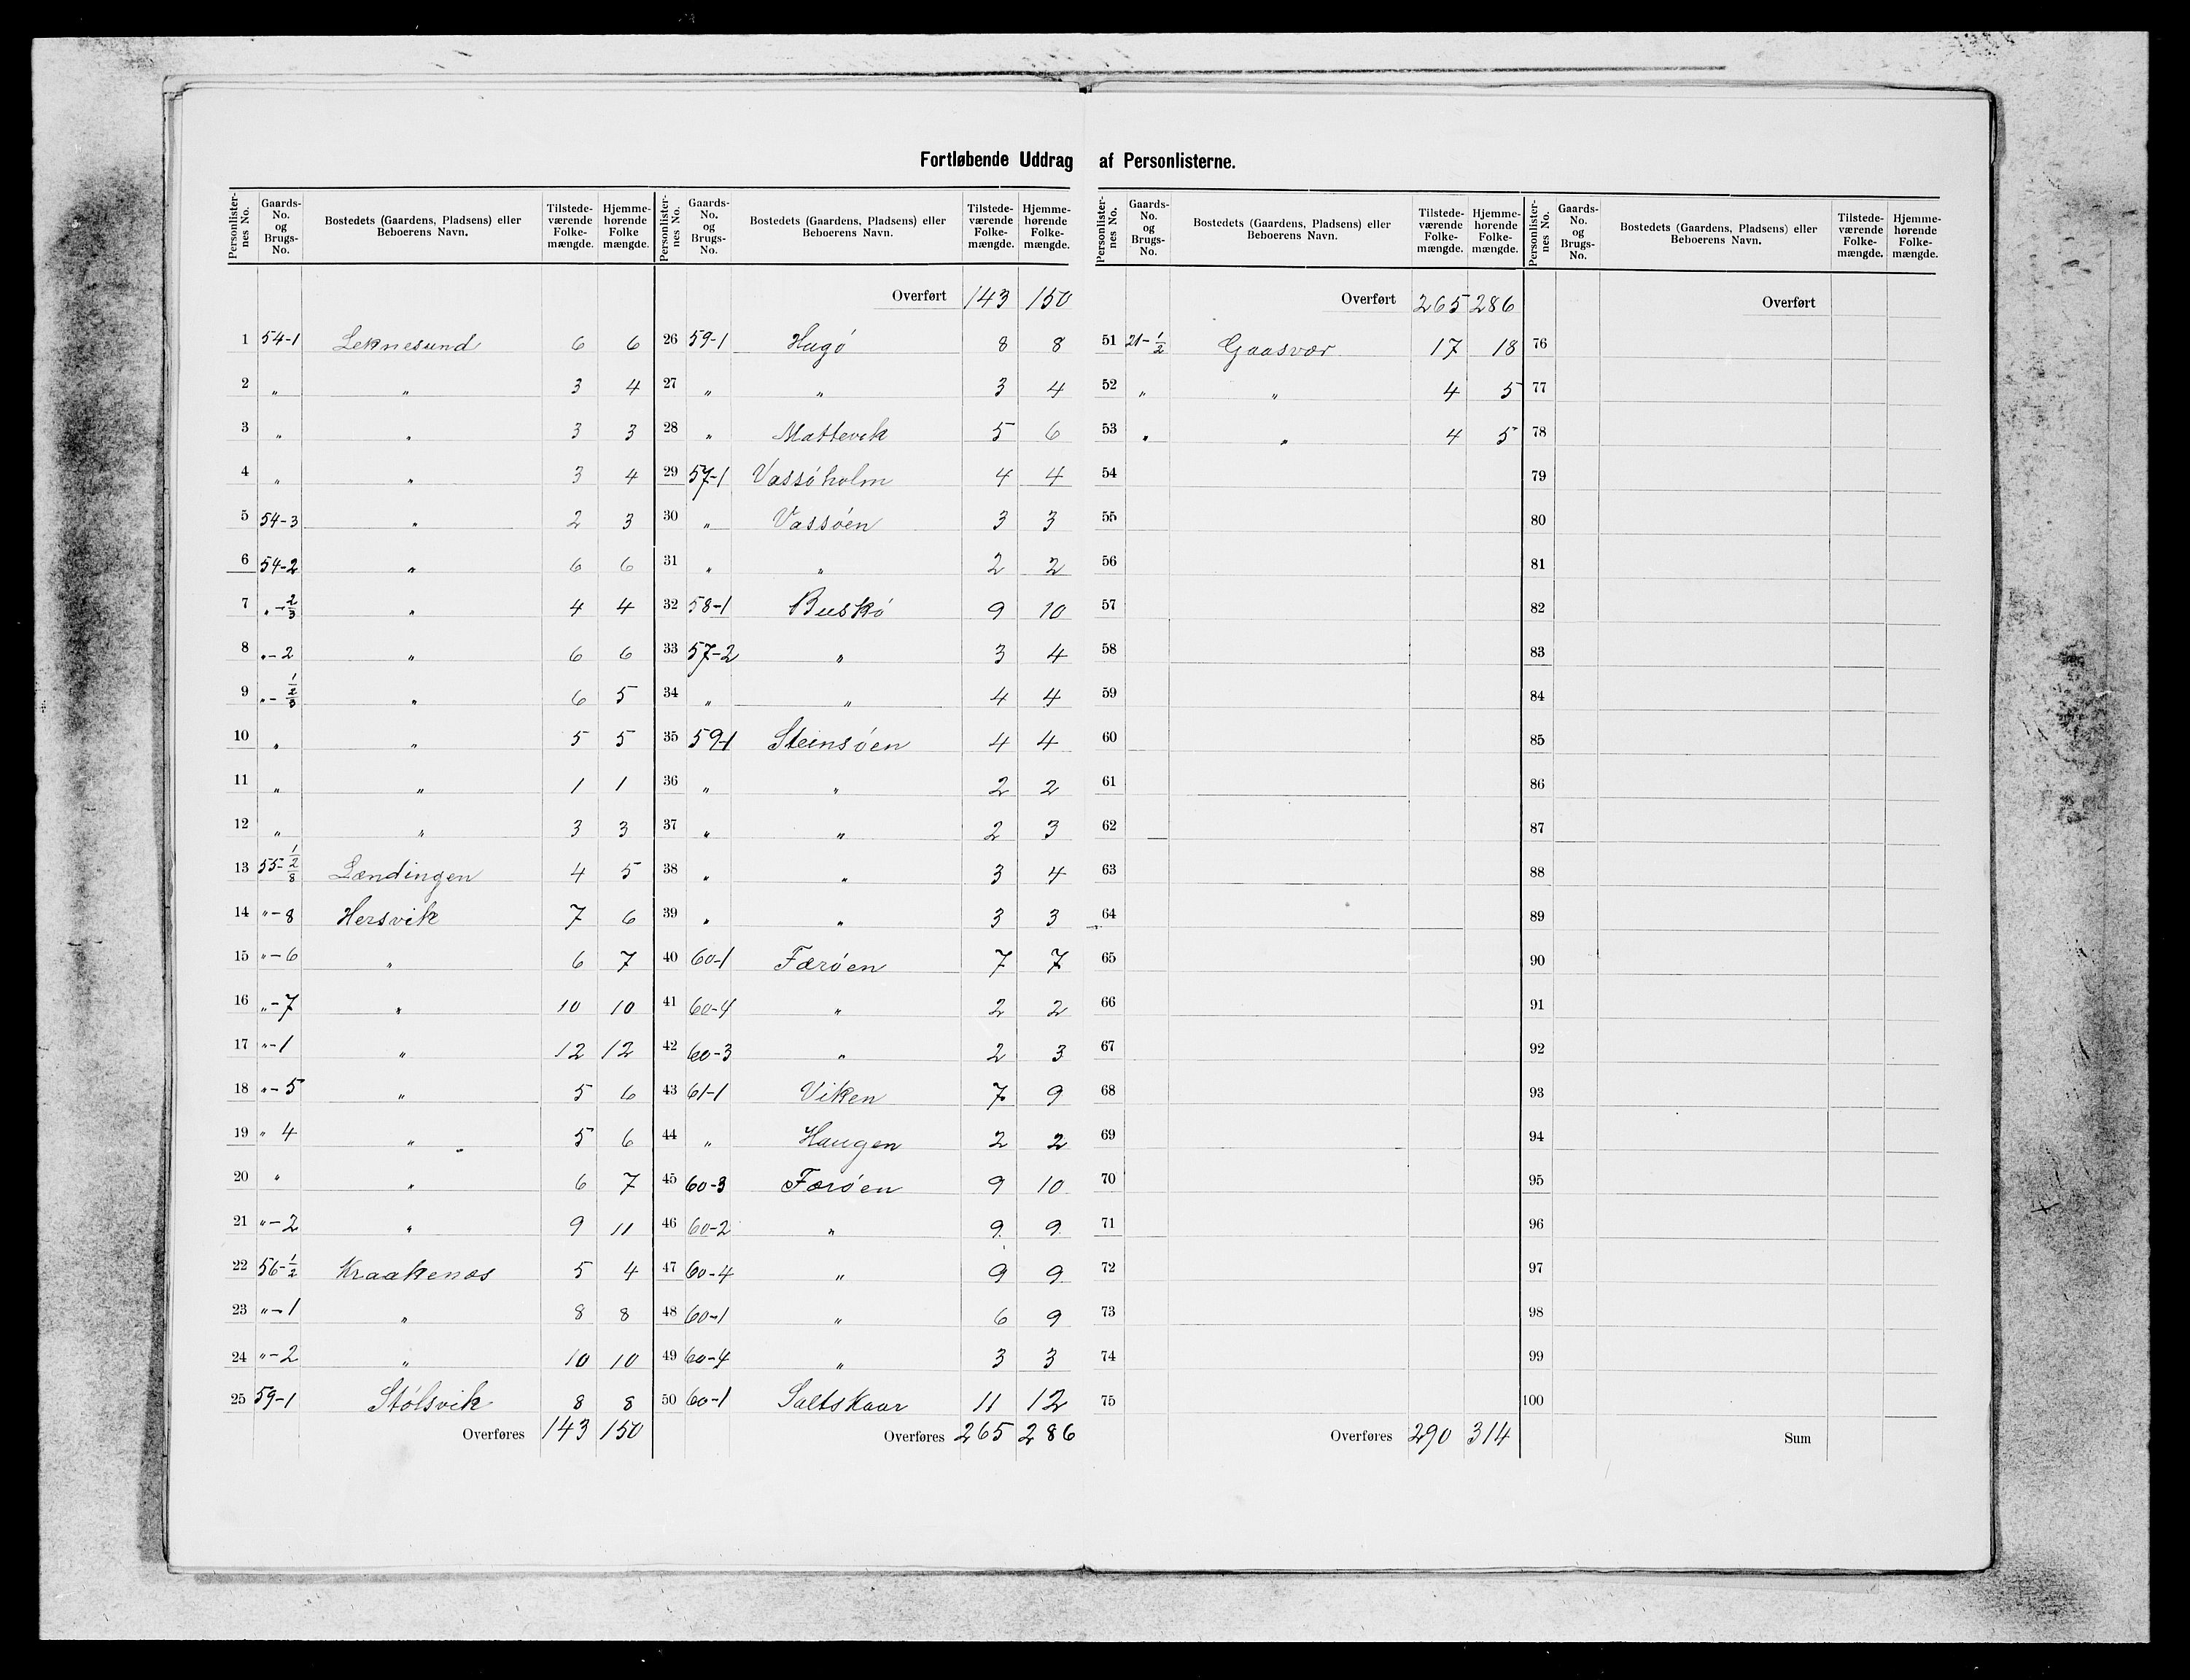 Fortløbende Uddrag af Personlisterne.
Personlister-nes No. | Gaards-No. og Brugs-No. | Bostedets (Gaardens, Pladsens) eller Beboerens Navn. | Tilstede-værende Folke-mængde. | Hjemme-hørende Folke mængde.
1 54-1 Leknesund 6 6
2 " " 3 4
3 " " 3 3
4 " " 3 4
5 54-3 " 2 3
6 54-2 " 6 6
7 " - 2/3 " 4 4
8 " - 2 " 6 6
9 " - 1/2/3 " 6 5
10 " " 5 5
11 " " 1 1
12 " " 3 3
13 55-1/2/8 Lændingen 4 5
14 " - 8 Hersvik 7 6
15 " - 6 " 6 7
16 " - 7 " 10 10
17 " - 1 " 12 12
18 " - 5 " 5 6
19 " 4 " 5 6
20 " " 6 7
21 " - 2 " 9 11
22 56-1/2 Kraakenæs 5 4
23 " - 1 " 8 8
24 " - 2 " 10 10
25 59-1 Stølsvik 8 8
Overføres 143 150
Personlister-nes No. | Gaards-No. og Brugs-No. | Bostedets (Gaardens, Pladsens) eller Beboerens Navn. | Tilstede-værende Folke-mængde. | Hjemme-hørende Folke mængde.
Overført 143 150
26 59-1 Hugø 8 8
27 " " 3 4
28 " Mattevik 5 6
29 57-1 Vassøholm 4 4
30 " Vassøen 3 3
31 " " 2 2
32 58-1 Buskø 9 10
33 57-2 " 3 4
34 " " 4 4
35 59-1 Steinsøen 4 4
36 " " 2 2
37 " " 2 3
38 " " 3 4
39 " " 3 3
40 60-1 Færøen 7 7
41 60-4 " 2 2
42 60-3 " 2 3
43 61-1 Viken 7 9
44 " Haugen 2 2
45 60-3 Færøen 9 10
46 60-2 " 9 9
47 60-4 " 9 9
48 60-1 " 6 9
49 60-4 " 3 3
50 60-1 Saltskaar 11 12
Overføres 265 286
Personlister-nes No. | Gaards-No. og Brugs-No. | Bostedets (Gaardens, Pladsens) eller Beboerens Navn. | Tilstede-værende Folke-mængde. | Hjemme-hørende Folke-mængde.
Overført 265 286
51 21-1/2 Gaasvær 17 18
52 " " 4 5
53 " " 4 5
54
55
56
57
58
59
60
61
62
63
64
65
66
67
68
69
70
71
72
73
74
75
Overføres 290 314
Personlister-nes No. | Gaards-No. og Brugs-No. | Bostedets (Gaardens, Pladsens) eller Beboerens Navn. | Tilstede-værende Folke-mængde. | Hjemme-hørende Folke-mængde.
Overført
76
77
78
79
80
81
82
83
84
85
86
87
88
89
90
91
92
93
94
95
96
97
98
99
100
Sum